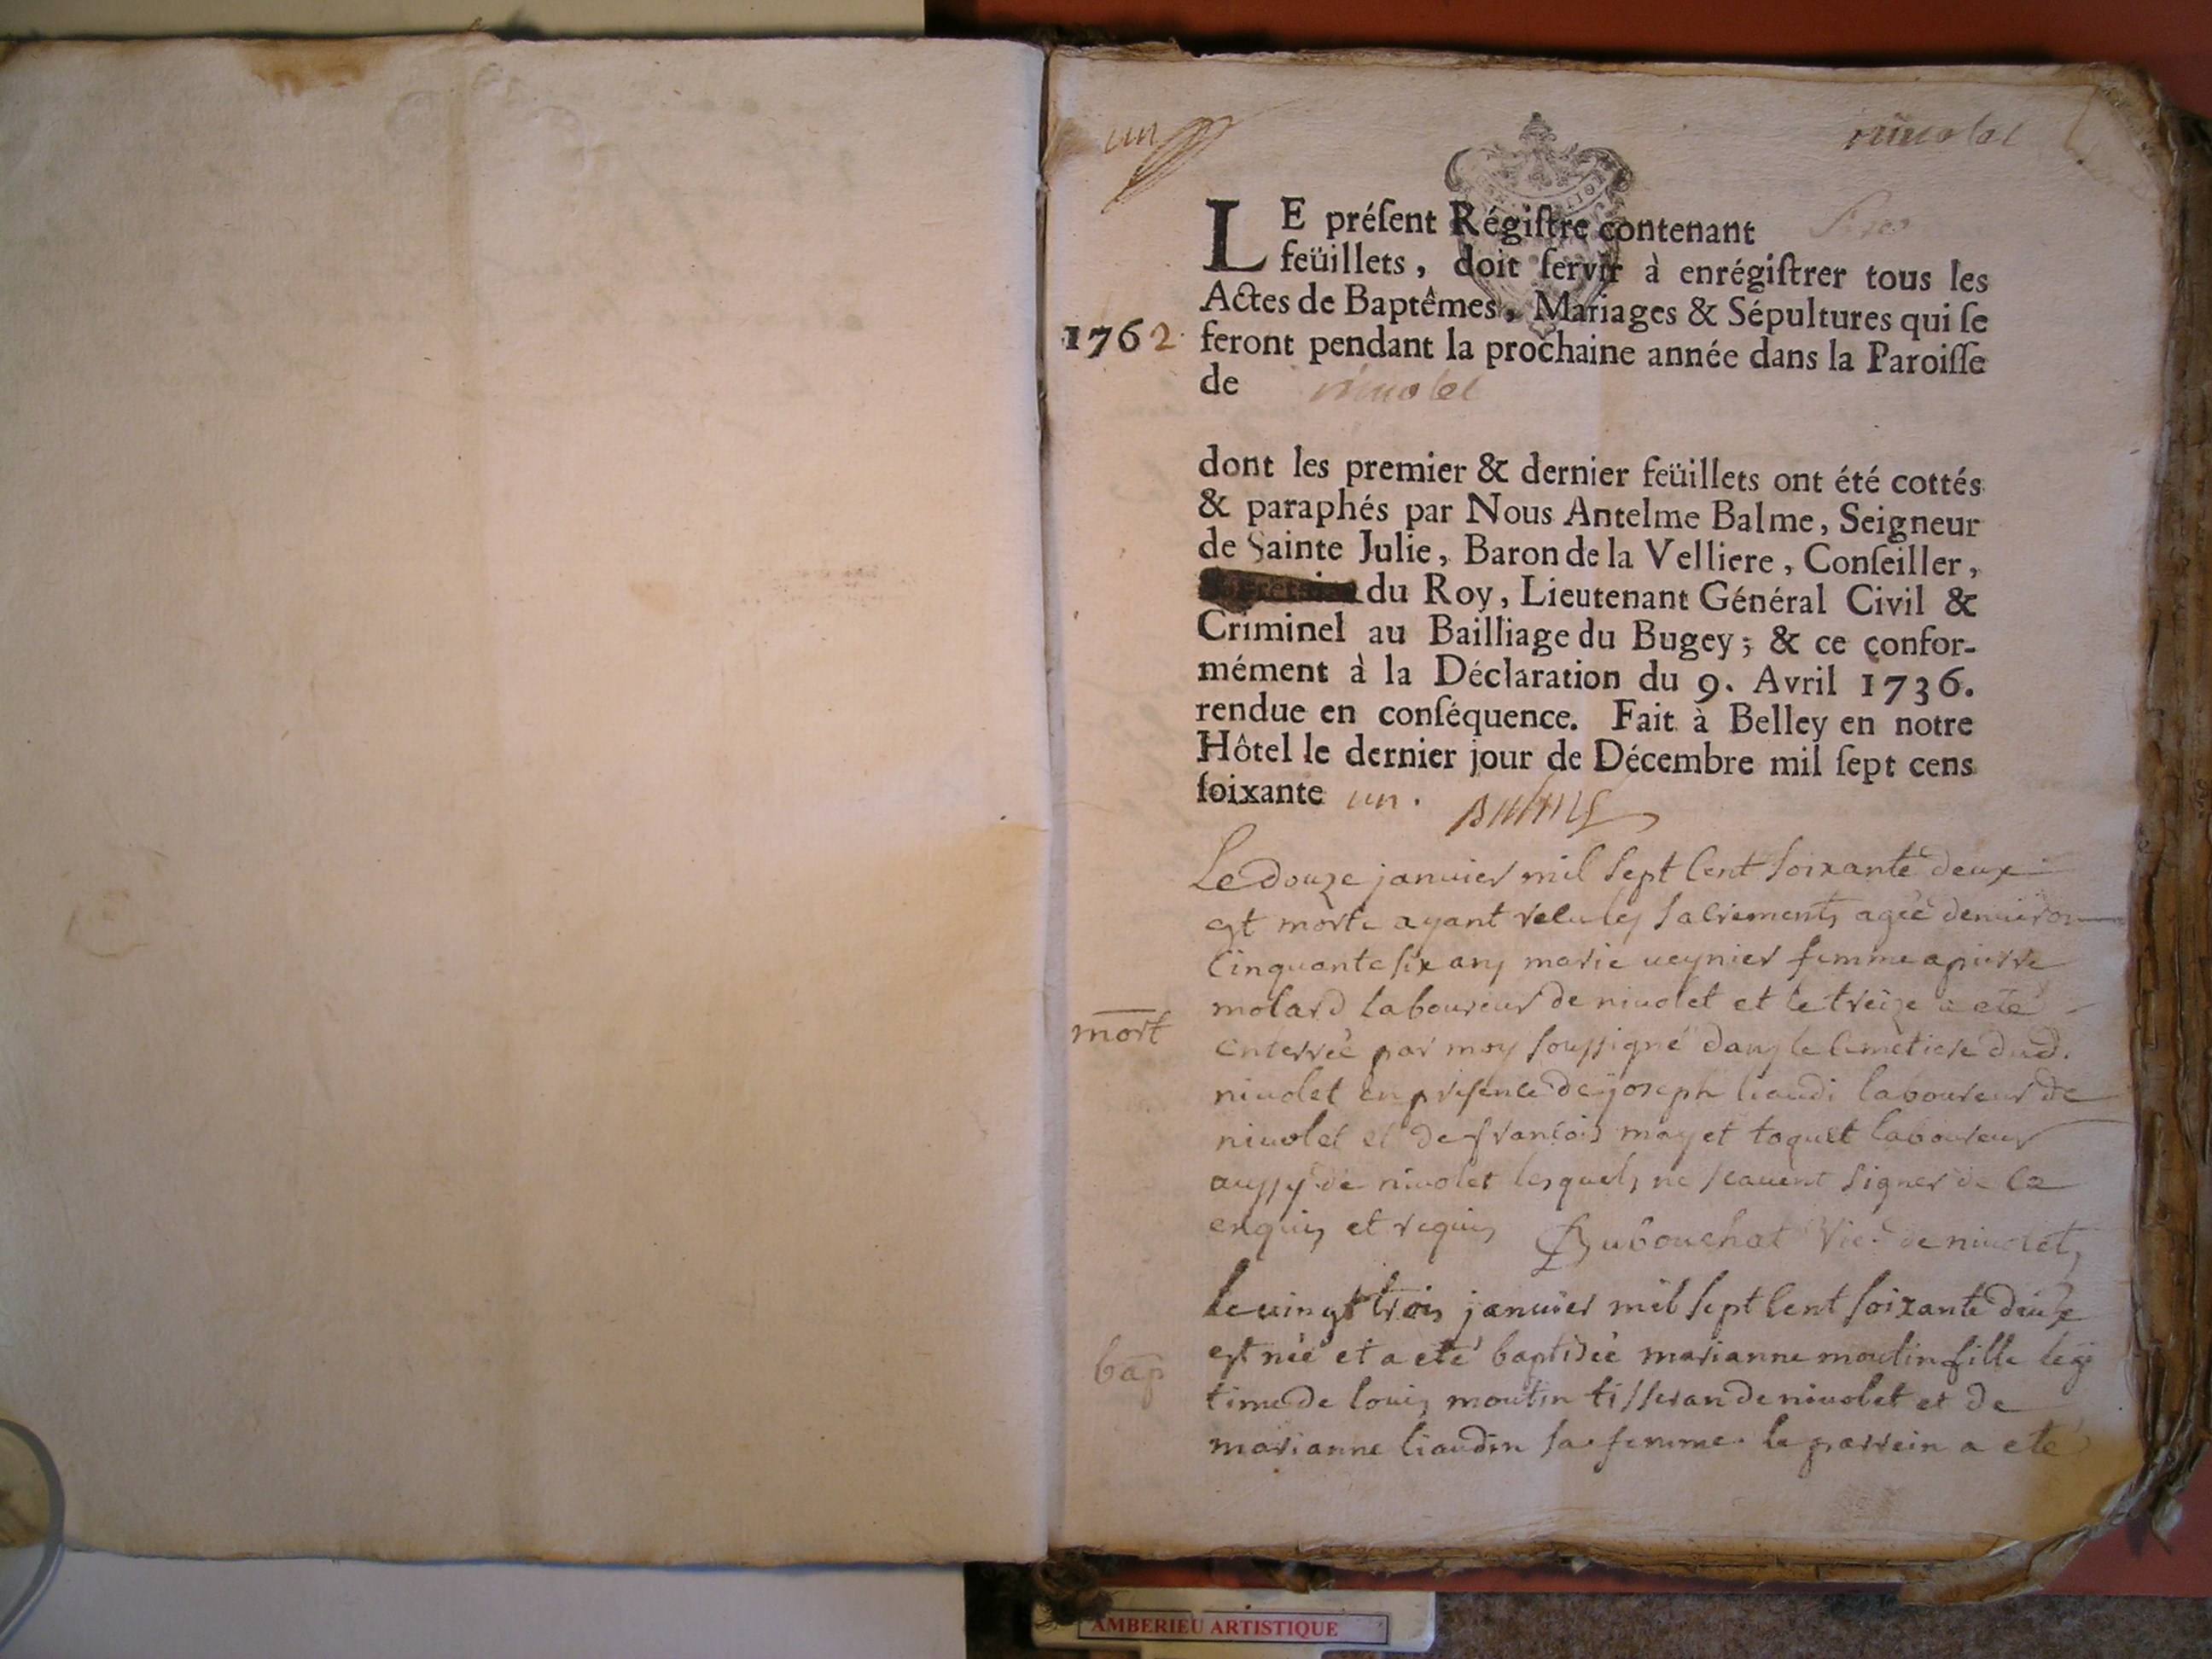 un
nivolet
LE préſent Régiſtre contenant
feüillets, doit ſervir à enrégiſtrer tous les
Actes de Baptêmes, Mariages & Sépultures qui ſe
1762 feront pendant la prochaine année dans la Paroiſſe
de nivolet
dont les premier & dernier feüillets ont été cottés
& paraphés par Nous Antelme Balme, Seigneur
de Sainte Julie, Baron de la Velliere, Conſeiller,
du Roy, Lieutenant Général Civil &
Criminel au Bailliage du Bugey; & ce confor-
mément à la Déclaration du 9. Avril 1736.
rendue en conſéquence. Fait à Belley en notre
Hôtel le dernier jour de Décembre mil ſept cens
ſoixante un. Balme
Le douze janvier mil sept cent soixante deux
est morte ayant recu les sacrements agée denuiron
cinquante six ans marie ueynier femme a pierre
molard laboureur de niuolet et le treize a eté
mort
enterrée par moy soussigné dans le cimetiere dud.
niuolet en presence de joseph liaudi laboureur de
niuolet et de francois mayet toquet laboureur
aussy de niuolet lesquels ne scauent signer de ce
enquis et requis Dubouchat Vic. de niuolet,
le uingt trois januier mil sept cent soixante deux
est née et a eté baptisée marianne moutin fille legi
bap
time de louis moutin tisseran de niuolet et de
marianne liaudin sa femme. le parrein a eté
AMBERIEU ARTISTIQUE